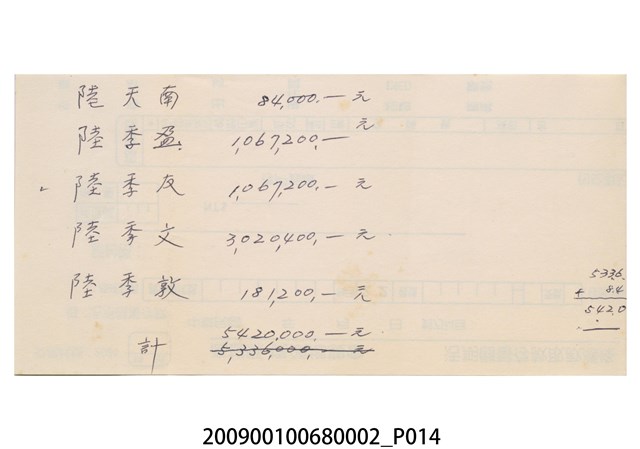 陸天南 84,000.—元
陸季盈 1,067,200.—元
陸季友 1,067,200.—元
陸季文 3,020,400.—元
陸季敦 181,200.—元
5420,000.—元
計 5,336,000.—元
5336.
+ 84
5420
200900100680002_P014